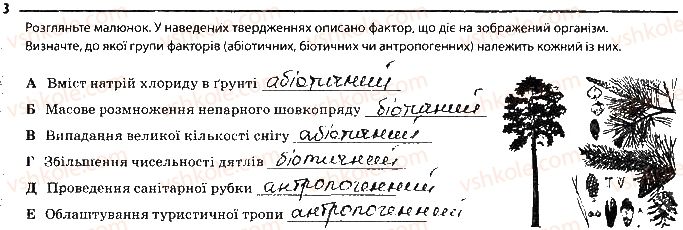 3
Розгляньте малюнок. У наведених твердженнях описано фактор, що діє на зображений організм.
Визначте, до якої групи факторів (абіотичних, біотичних чи антропогенних) належить кожний із них.
А Вміст натрій хлориду в ґрунті абіотичний
Б Масове розмноження непарного шовкопряду біотичний
В Випадання великої кількості снігу абіотичний
Г Збільшення чисельності дятлів біотичний
Д Проведення санітарної рубки антропогенний
Е Облаштування туристичної тропи антропогенний
vshkole.com